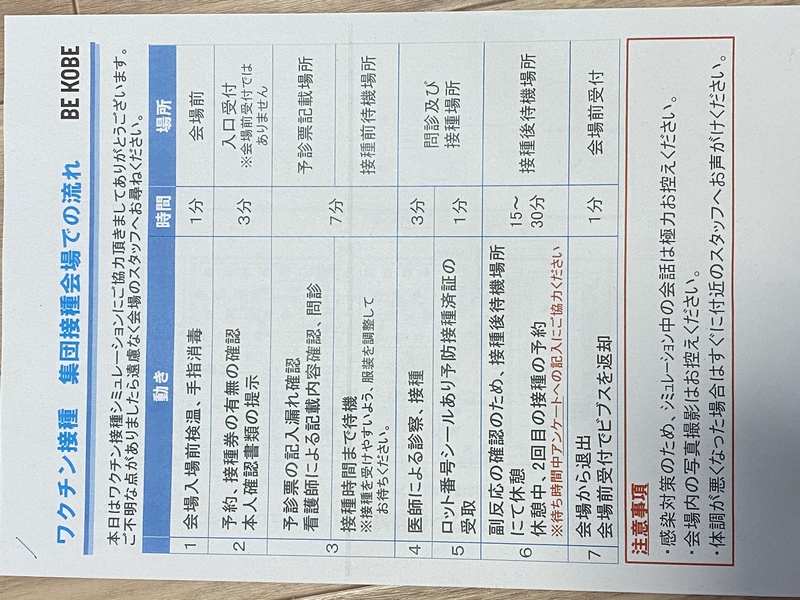 ワクチン接種 集団接種会場での流れ BE KOBE
本日はワクチン接種シミュレーションにご協力頂きましてありがとうございます。
ご不明な点がありましたら遠慮なく会場のスタッフへお尋ねください。
動き 時間 場所
1 会場入場前検温、手指消毒 1分 会場前
2 予約、接種券の有無の確認
本人確認書類の提示 3分 入口受付
※会場前受付では
ありません
3 予診票の記入漏れ確認
看護師による記載内容確認、問診 7分 予診票記載場所
接種時間まで待機
※接種を受けやすいよう、服装を調整して
お待ちください。 接種前待機場所
4 医師による診察、接種 3分 問診及び
接種場所
5 ロット番号シールあり予防接種済証の
受取 1分
6 副反応の確認のため、接種後待機場所
にて休憩
休憩中、2回目の接種の予約
※待ち時間中アンケートへの記入にご協力ください 15～
30分 接種後待機場所
7 会場から退出
会場前受付でビブスを返却 1分 会場前受付
注意事項
・感染対策のため、シミュレーション中の会話は極力お控えください。
・会場内の写真撮影はお控えください。
・体調が悪くなった場合はすぐに付近のスタッフへお声がけください。